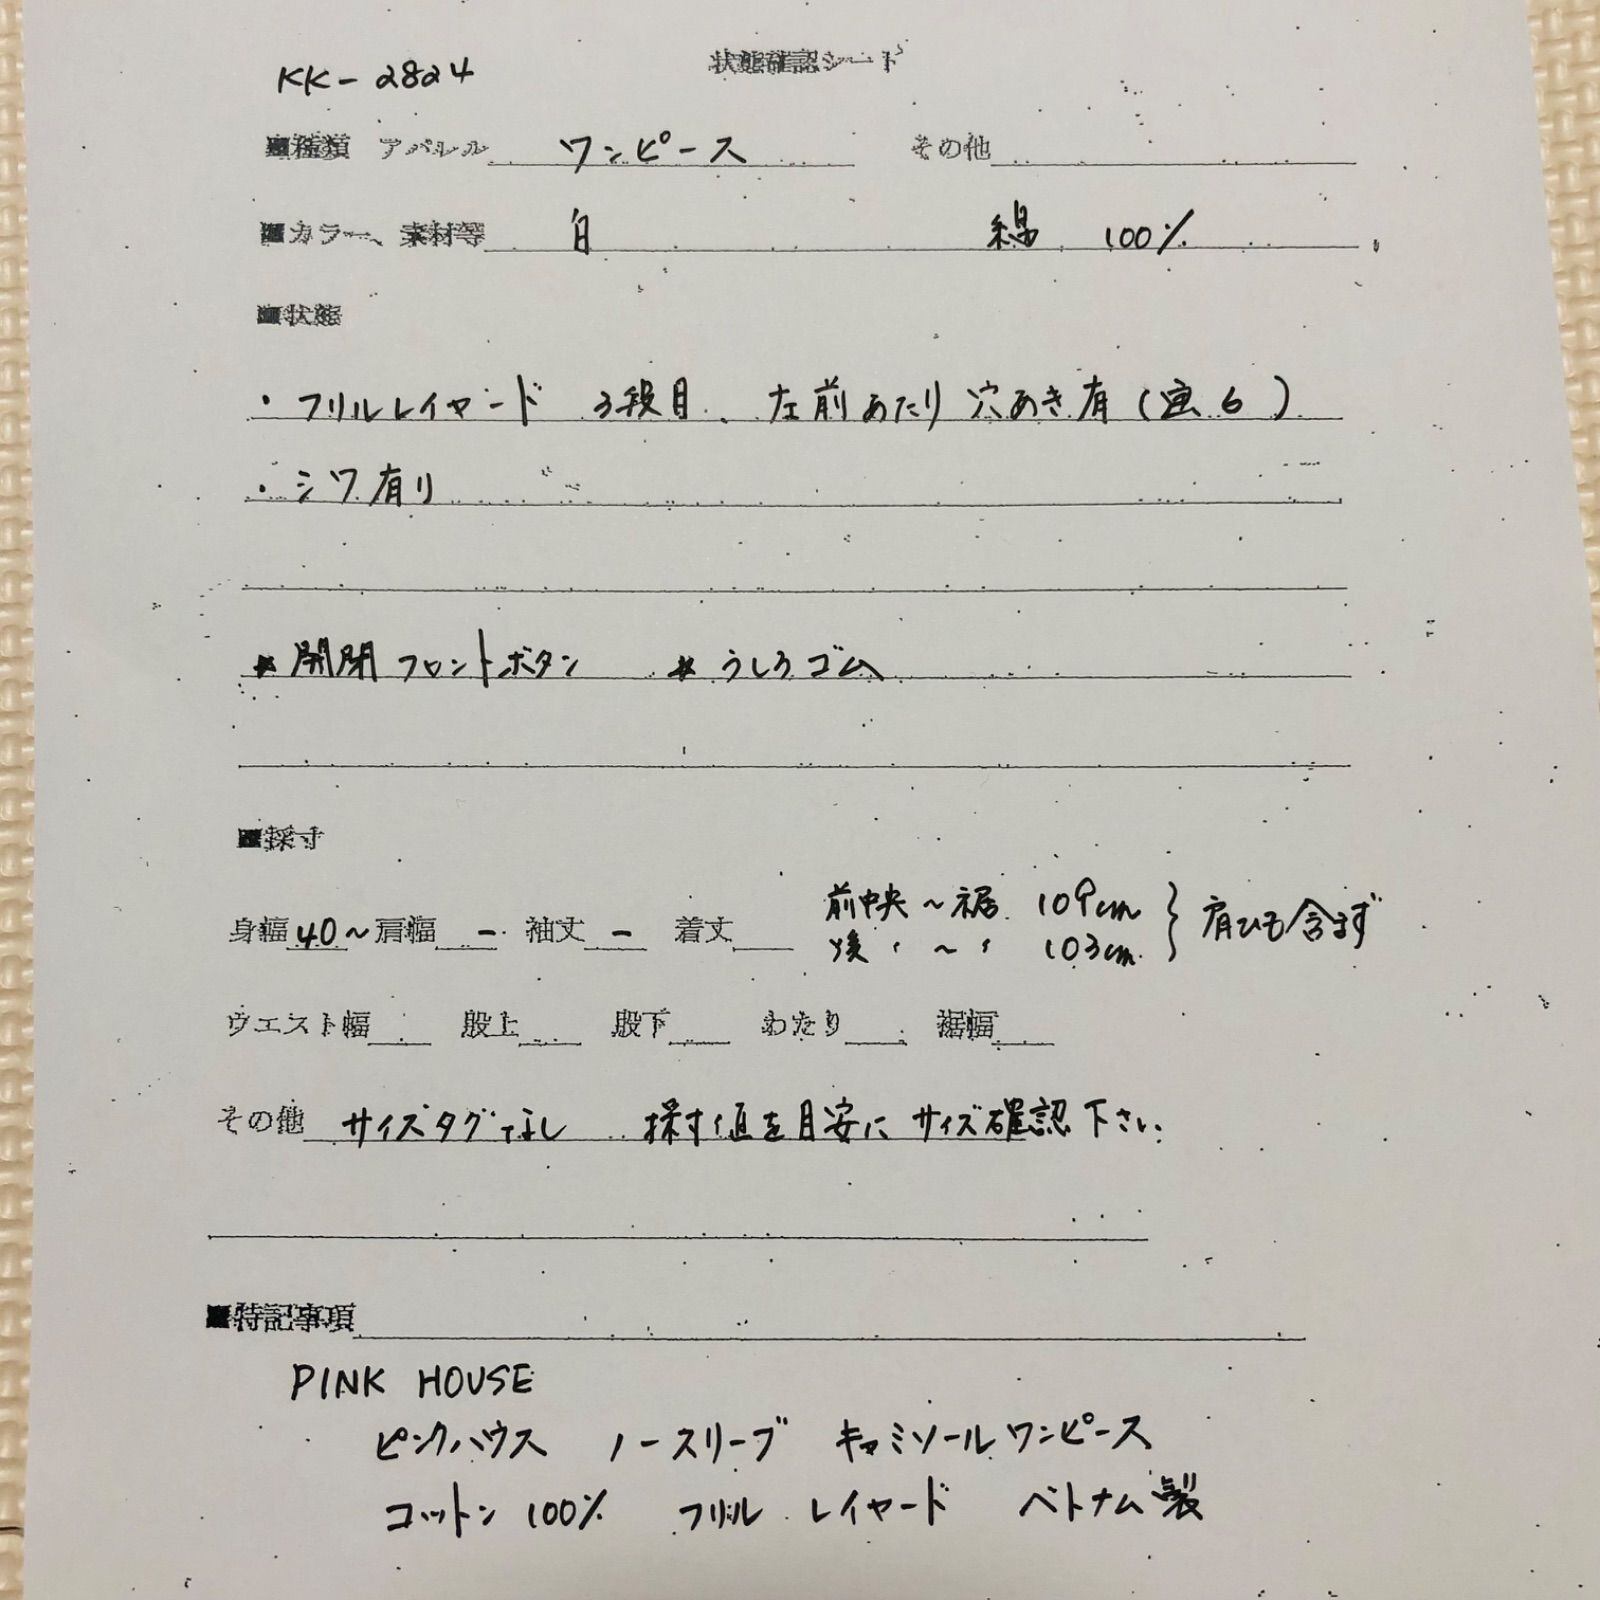 状態確認シート
KK-2824
■種類 アパレル ワンピース その他
■カラー、素材等 白 綿 100%
■状態
・フリルレイヤード 3段目、左前あたり 穴あき有(画6)
・シワ有り
* 開閉フロントボタン * うしろゴム
■採寸
前中央〜裾 109cm
身幅 40〜 肩幅 - 袖丈 - 着丈 } 肩ひも含まず
後 〃 〜 〃 103cm
ウエスト幅 股上 股下 わたり 裾幅
その他 サイズタグなし 採寸値を目安に サイズ確認下さい.
■特記事項
PINK HOUSE
ピンクハウス ノースリーブ キャミソールワンピース
コットン 100% フリル レイヤード ベトナム製